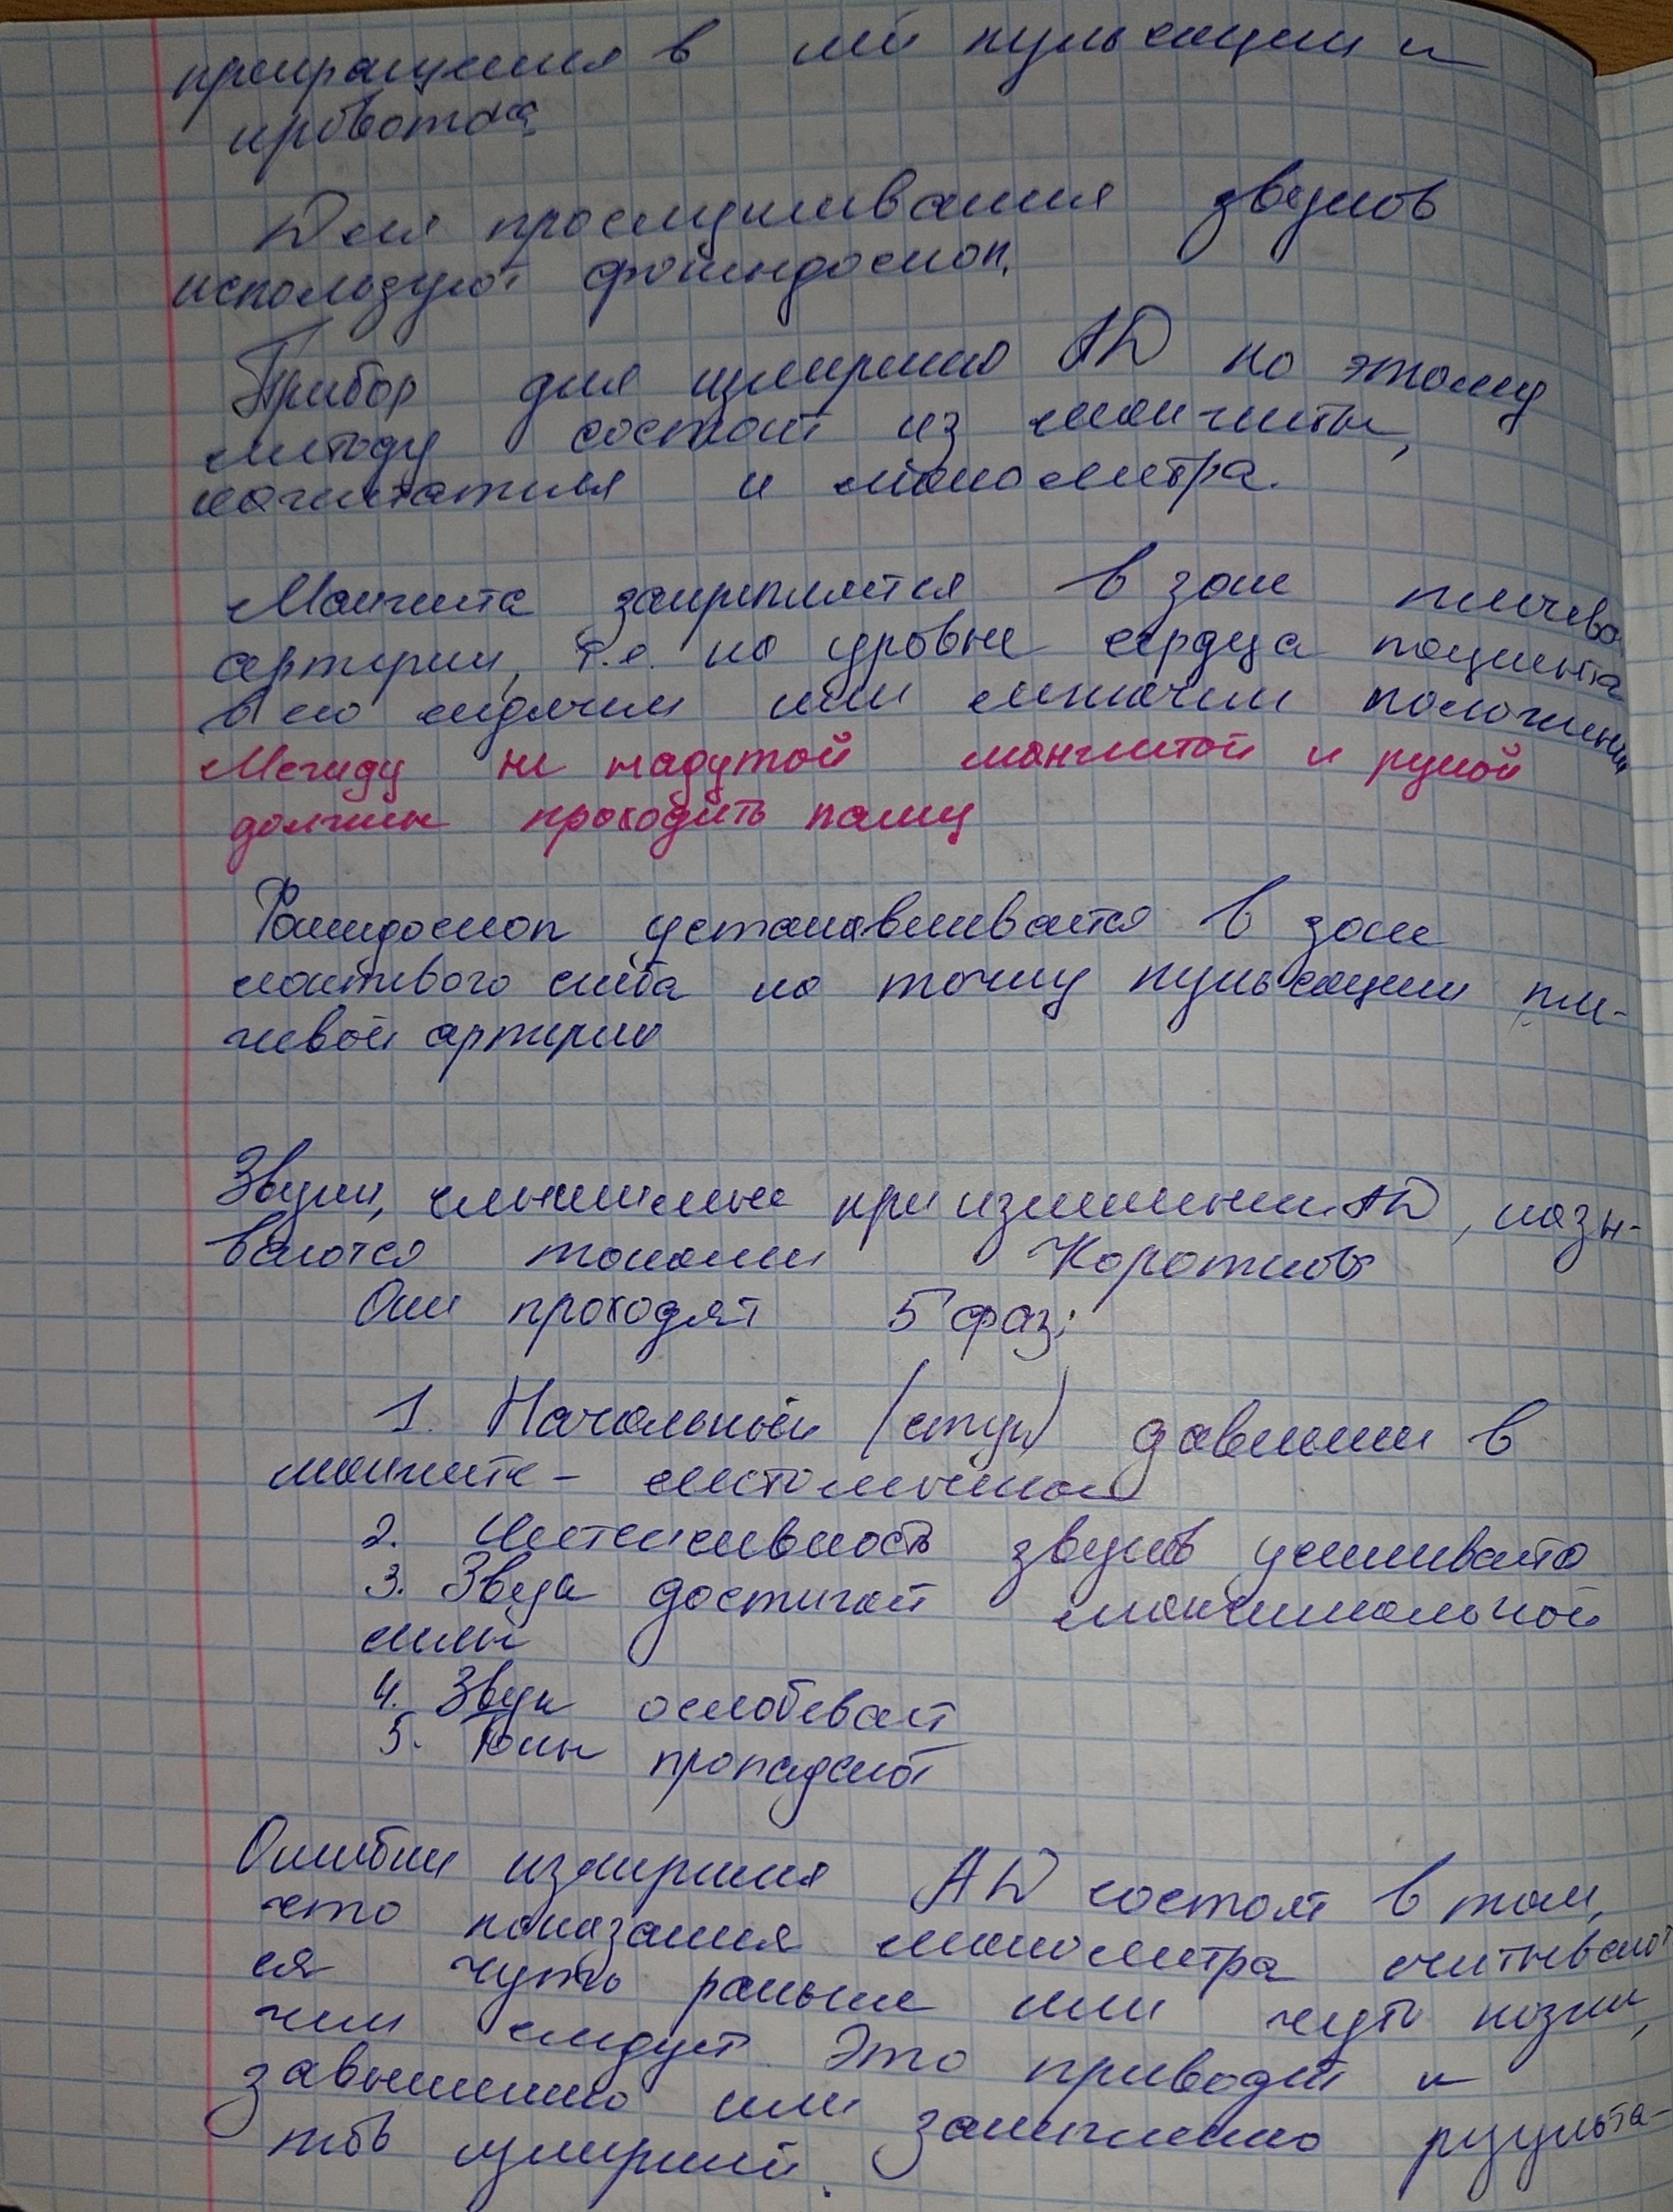 прекращения в ней пульсации и
кровотока
Для прослушивания звуков
используют фонендоскоп.
Прибор для измерению АД по этому
методу состоит из манжеты,
нагнетателя и манометра.
Манжета закрепляется в зоне плечево
артерии, т.е. на уровне сердца пациента
в его сидячем или лежачем положении
Между не надутой манжетой и рукой
должен проходить палец
Фонендоскоп устанавливается в зоне
локтевого сгиба на точку пульсации пле-
чевой артерию
Звуки, слышимые при измененыи АД, назы-
ваются тонами Короткова
Они проходят 5 фаз:
1. Начальный (стук) давлении в
манжете -
2. Интенсивность звуков усиливаето
3. Звук достигает максимальной
силы
4. Звук ослабевает
5. Тоны пропадают
Ошибки измерения АД состоят в том,
что показания манометра считывают
ся чуть раньше или чуть позже,
чем следует. Это приводит к
завышению или занижению результа-
тов измерений.